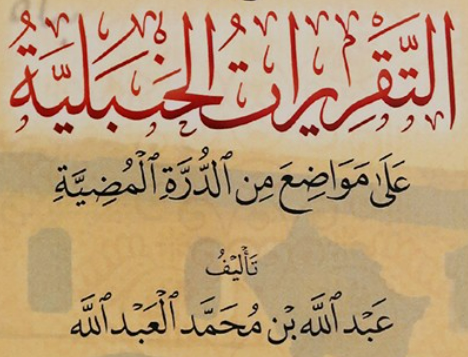 التَّقْرِيرَاتُ الحَنْبَلِيَّة
عَلَى مَوَاضِعَ مِنَ الدُّرَّةِ الْمُضِيَّةِ
تَأْلِيفُ
عَبْدِ اللَّهِ بْنِ مُحَمَّدٍ الْعَبْدِ اللَّه